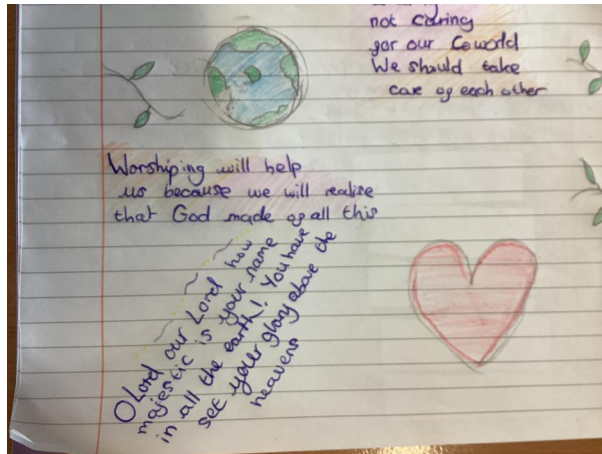 not caring
for our Coworld
We should take
care of each other
Worshiping will help
us because we will realise
that God made of all this
O Lord our Lord how
majestic is your name
in all the earth! You have
set your glory above the
heavens